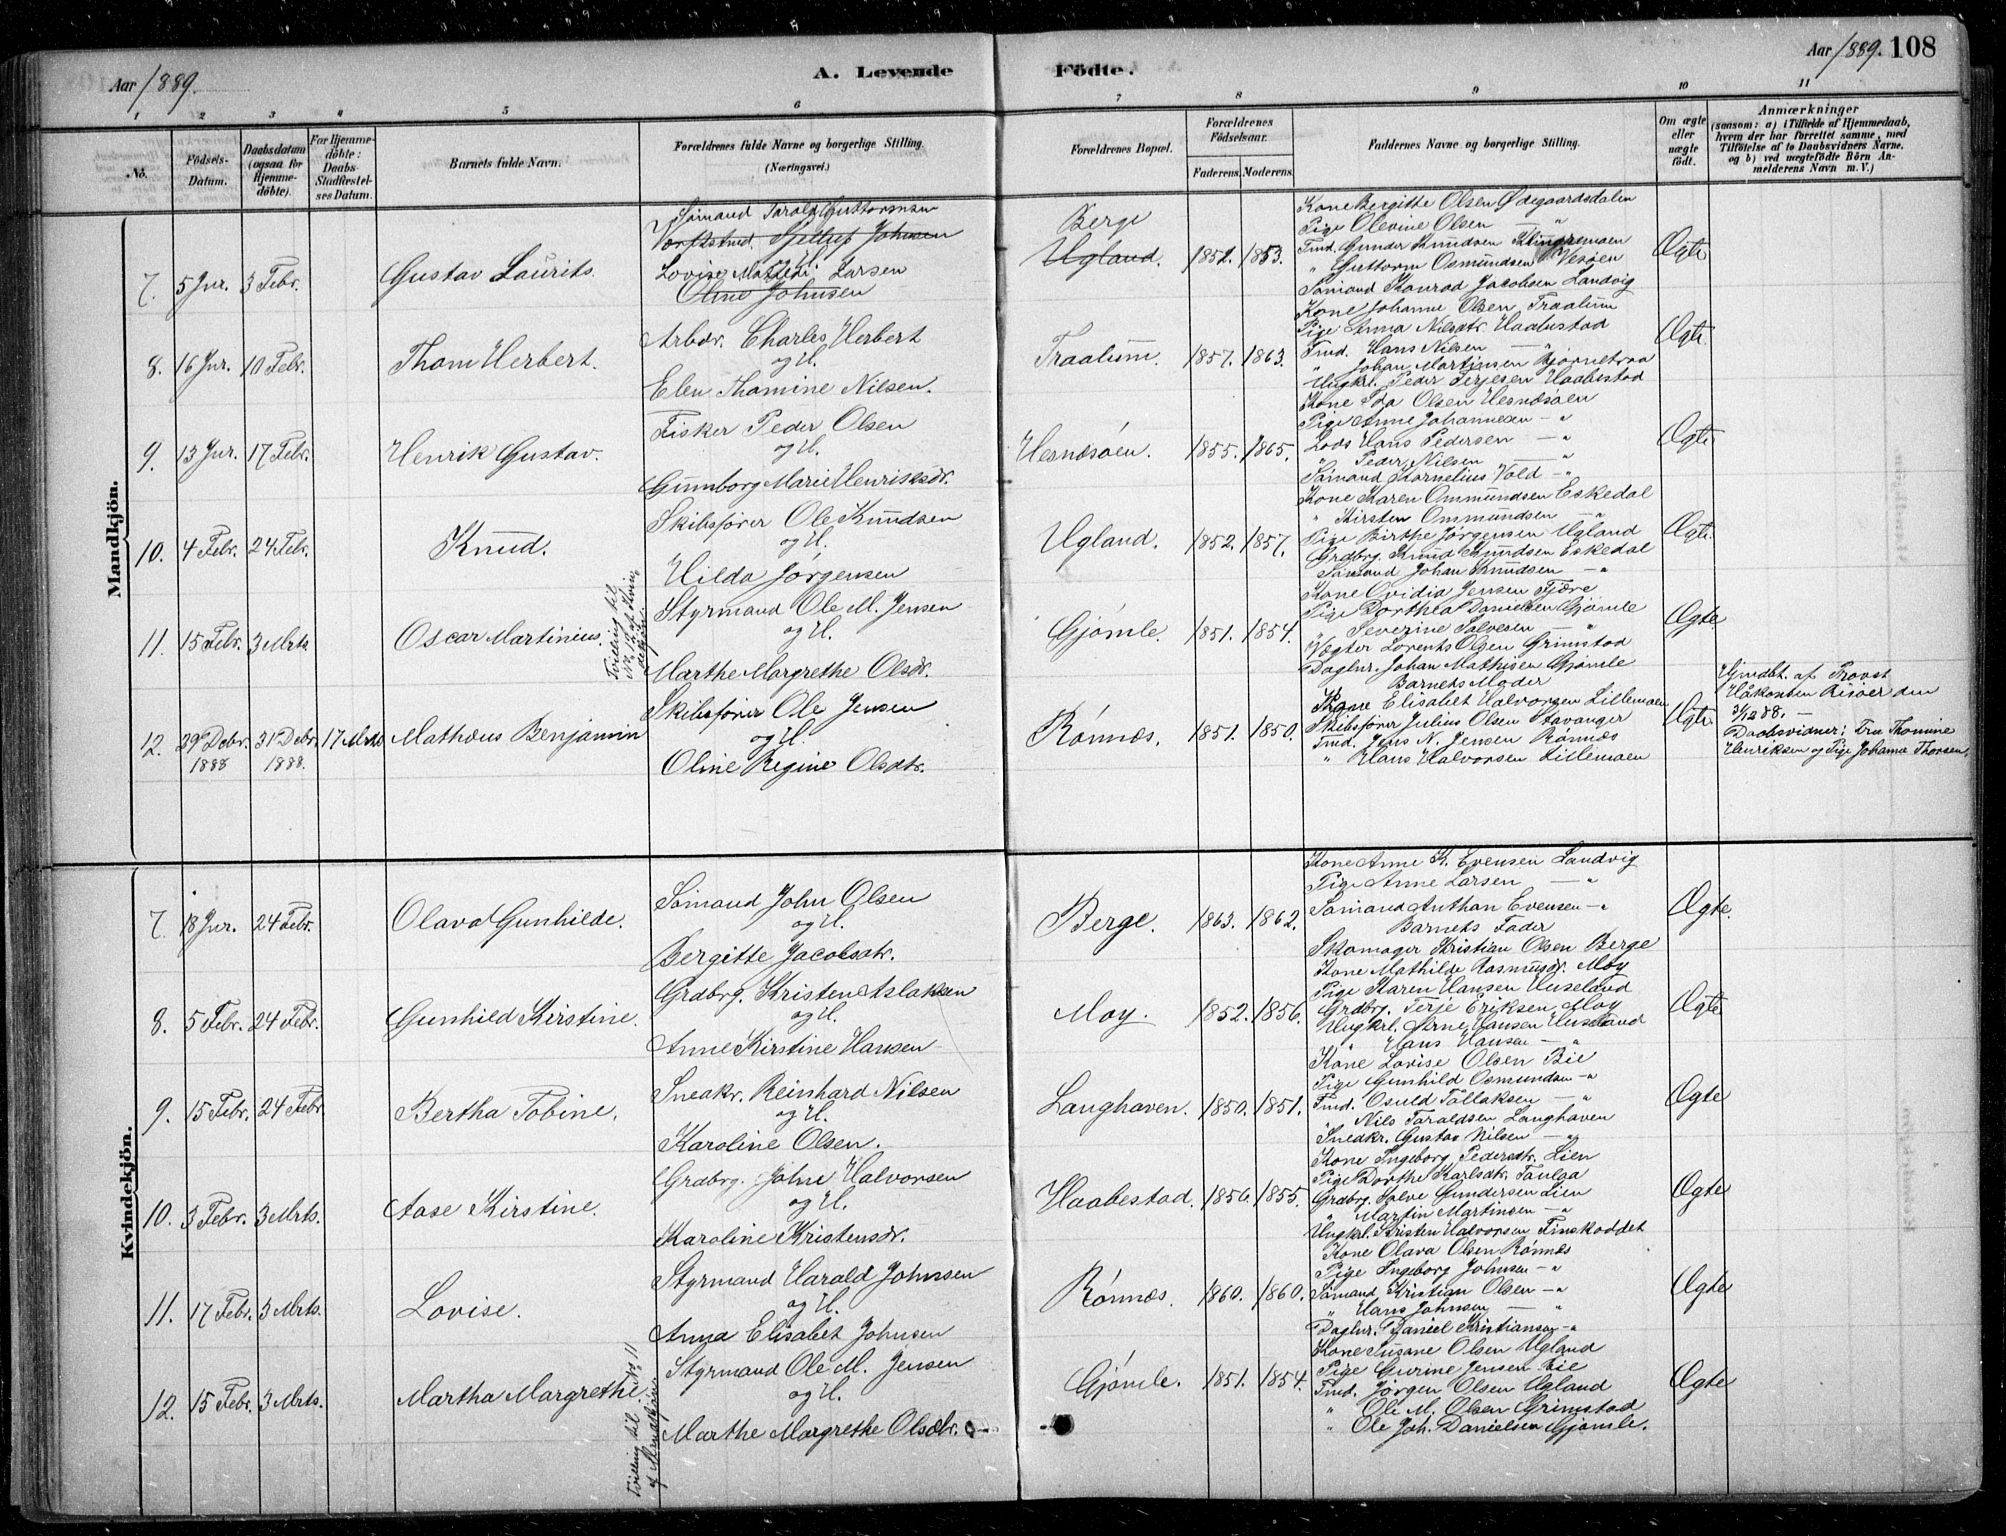 Aar 1889.
A. Levende Födte.
Aar 1889. 108
1 2 3 4 5 6 7 8 9 10 11
No.
Födsels-Datum.
Daabsdatum (ogsaa for Hjemme-döbte).
For Hjemme-döbte: Daabs-Stadfæstel-ses Datum.
Barnets fulde Navn.
Forældrenes fulde Navne og borgerlige Stilling. (Næringsvei.)
Forældrenes Bopæl.
Forældrenes Födselsaar.
Faderens. Moderens.
Faddernes Navne og borgerlige Stilling.
Om ægte eller uægte födt.
Anmærkninger (saasom: a) i Tilfælde af Hjemmedaab, hvem der har forrettet samme, med Tilföielse af to Daabsvidners Navne. og b) ved uægtefödte Börn An-melderens Navn m. V.)
Mandkjön.
7. 5 Jnr. 3 Febr. Gustav Laurits.
Sømand Tarald Guttormsen
Værftstmd. Tjelluf Johnsen
og H.
Lovise Mathedi Larsen
Oline Johnsen
Berge
Ugland. 1852. 1853.
Kone Bergitte Olsen Ødegaardsdalen
Pige Olevine Olsen — "
Tmd. Gunder Knudsen Klingremoen
" Guttorm Osmundsen Vesøen
Sømand Konrad Jacobsen Landvig
Ægte
8. 16 Jnr. 10 Febr. Thom Herbert.
Arbdr. Charles Herbert
og H.
Elen Thomine Nilsen.
Traalum. 1857. 1863.
Kone Johanne Olsen Traalum
Pige Anna Nilsdtr. Haabestad
Tmd. Hans Nilsen — "
" Johan Martinsen Bjørnetraa
Ungkrl. Peder Terjesen Haabestad
Ægte
9. 13 Jnr. 17 Febr. Henrik Gustav.
Fisker Peder Olsen
og H.
Gunborg Marie Henriksdr.
Hesnæsøen. 1855. 1865.
Kone Ida Olsen Hesnæsøen
Pige Anne Johannesen — "
Lods Hans Pedersen — "
" Peder Nilsen — "
Sømand Kornelius Vold — "
Ægte
10. 4 Febr. 24 Febr. Knud.
Skibsfører Ole Knudsen
og H.
Hilda Jørgensen
Ugland. 1852. 1857.
Kone Karen Ommundsen Eskedal
" Kirsten Ommundsen — "
Pige Birthe Jørgensen Ugland
Grdbrg. Knud Knudsen Eskedal
Sømand Johan Knudsen — "
Ægte
11. 15 Febr. 3 Mrts. Oscar Martinius.
Tvilling til No. 12 af Kvindekjön.
Styrmand Ole M. Jensen
og H.
Marthe Margrethe Olsdr.
Gjømle. 1851. 1854.
Kone Ovidia Jensen Fjære
Pige Dorthea Danielsen Gjømle
" Severine Salvesen — "
Vægter Lorents Olsen Grimstad
Daglnr. Johan Mathisen Gjømle
Ægte
12. 29 Debr. 1888 31 Debr. 1888. 17 Mrts Mathæus Benjamin
Skibsfører Ole Jensen
og H.
Oline Regine Olsdtr.
Rønnæs. 1851. 1850.
Barnets Moder
Kone Elisabet Halvorsen Lillemoen
Skibsfører Julius Olsen Stavanger
Tmd. Jens N. Jensen Rønnæs
" Hans Halvorsen Lillemoen
Ægte
Hjmdbt. af Provst
Håkonsen Risøer den
31/12 88. —
Daabsvidner: Fru Thomine
Henriksen og Pige Johanne Thorsen.
Kvindekjön.
7. 18 Jnr. 24 Febr. Olava Gunhilde.
Sømand John Olsen
og H.
Bergitte Jacobsdtr.
Berge. 1863. 1862.
Kone Anne K. Evensen Landvig
Pige Anne Larsen — "
Sømand Anthan Evensen — "
Barnets Fader
Skomager Kristian Olsen Berge
Ægte
8. 5 Febr. 24 Febr. Gunhild Kirstine.
Grdbrg. Kristen Aslaksen
og H.
Anne Kirstine Hansen
Moy. 1852. 1856.
Kone Mathilde Rasmusdr. Moy
Pige Karen Hansen Huseland
Grdbrg. Terje Eriksen Moy
Ungkrl. Arne Hansen Huseland
" Hans Hansen — "
Ægte
9. 15 Febr. 24 Febr. Bertha Tobine.
Snedkr. Reinhard Nilsen
og H.
Karoline Olsen.
Langhaven. 1850. 1851.
Kone Lovise Olsen Bie
Pige Gunhild Osmundsen — "
Tmd. Osuld Tallaksen — "
" Nils Taraldsen Langhaven
Snedkr. Gustav Nilsen — "
Ægte
10. 3 Febr. 3 Mrts. Aase Kirstine.
Grdbrg. John Halvorsen
og H.
Karoline Kristensdr.
Haabestad. 1856. 1855.
Kone Ingeborg Pedersdtr. Lien
Pige Dorthe Karlsdtr. Taulaa
Grdbrg. Salve Gundersen Lien
" Martin Martinsen — "
Ungkrl. Kristen Halvorsen Finskoddet
Ægte
11. 17 Febr. 3 Mrts. Lovise.
Styrmand Harald Johnsen
og H.
Anna Elisabet Johnsen
Rønnæs. 1860. 1860.
Kone Olava Olsen Rønnæs
Pige Ingeborg Johnsen — "
Sømand Kristian Olsen — "
" Hans Johnsen — "
Daglnr. Daniel Kristiansen — "
Ægte
12. 15 Febr. 3 Mrts. Martha Margrethe.
Tvilling til No. 11 af Mandkjøn.
Styrmand Ole M. Jensen
og H.
Marthe Margrethe Olsdtr.
Gjømle. 1851. 1854.
Kone Susane Olsen Ugland
Pige Gurine Jensen Bie
Tmd. Jørgen Olsen Ugland
" Ole M. Olsen Grimstad
" Ole Joh. Danielsen Gjømle.
Ægte